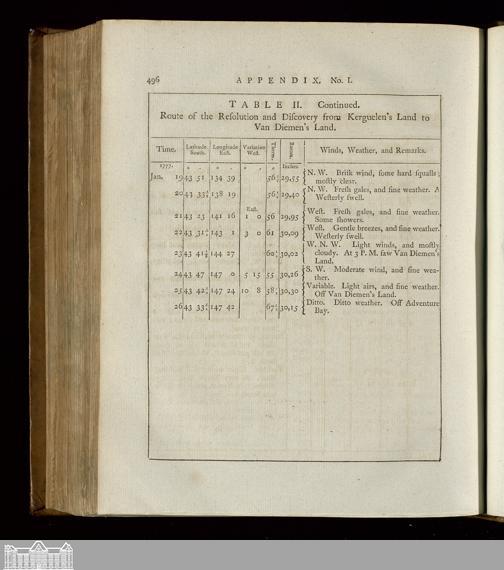 496 APPENDIX, No. I.
TABLE II. Continued.
Route of the Resolution and Discovery from Kerguelen's Land to
Van Diemen's Land.
Time. Latitude South. Longitude East. Variation West. Therm. Barom. Winds, Weather, and Remarks.
1777. Inches
Jan. 19 43 51 134 39 56 29,55 N. W. Brisk wind, some hard squalls;
mostly clear.
20 43 33 138 19 56 29,40 N. W. Fresh gales, and fine weather. A
Westerly swell.
East.
21 43 23 141 16 1 0 56 29,95 West. Fresh gales, and fine weather.
Some showers.
22 43 31 143 1 3 0 61 30,09 West. Gentle breezes, and fine weather.
Westerly swell.
W. N. W. Light winds, and mostly
23 43 41 144 27 60 30,02 cloudy. At 3 P. M. saw Van Diemen's
Land.
24 43 47 147 0 5 15 55 30,26 S. W. Moderate wind, and fine wea-
ther.
25 43 42 147 24 10 8 58 30,30 Variable. Light airs, and fine weather.
Off Van Diemen's Land.
26 43 33 147 42 67 30,15 Ditto. Ditto weather. Off Adventure
Bay.